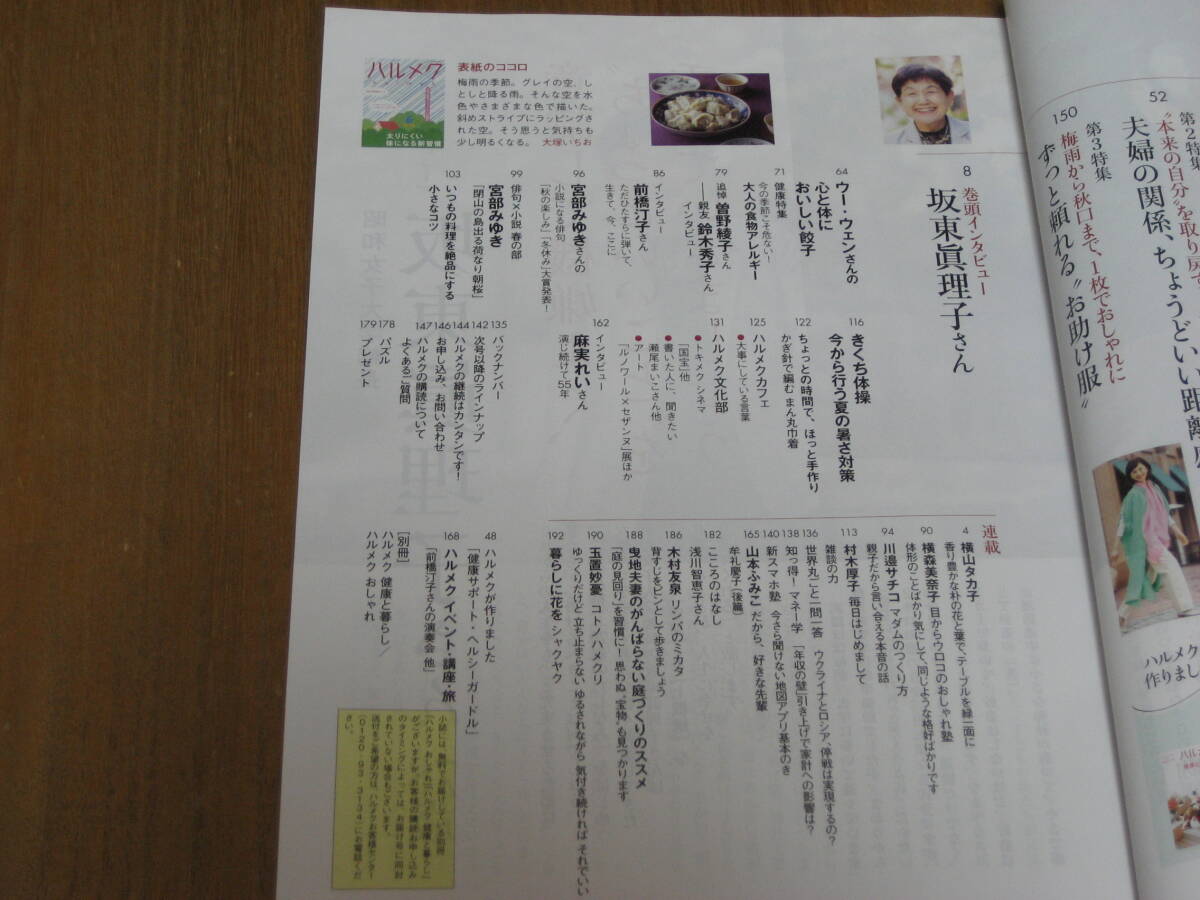 52
第2特集
“本来の自分”を取り戻す
夫婦の関係、ちょうどいい距離
150
第3特集
梅雨から秋口まで、1枚でおしゃれに
ずっと頼れる“お助け服”
ハルメク
作りまし
8
巻頭インタビュー
坂東眞理子さん
ハルメク
太りにくい
体になる新習慣
表紙のココロ
梅雨の季節。グレイの空、し
としと降る雨。そんな空を水
色やさまざまな色で描いた。
斜めストライプにラッピングさ
れた空。そう思うと気持ちも
少し明るくなる。 大塚いちお
64
ウー・ウェンさんの
心と体に
おいしい餃子
71
健康特集
今の季節こそ危ない！
大人の食物アレルギー
79
追悼 曽野綾子さん
──親友 鈴木秀子さん
インタビュー
86
インタビュー
前橋汀子さん
ただひたすらに弾いて、
生きて、今、ここに
96
宮部みゆきさんの
小説になる俳句
「秋の楽しみ」「冬休み」大賞発表！
99
俳句×小説 春の部
宮部みゆき
「閉山の島出る荷なり朝桜」
103
いつもの料理を絶品にする
小さなコツ
116
きくち体操
今から行う夏の暑さ対策
122
ちょっとの時間で、ほっと手作り
かぎ針で編む まん丸巾着
125
ハルメクカフェ
●大事にしている言葉
131
ハルメク文化部
●トキメクシネマ
「国宝」他
●書いた人に、聞きたい
瀬尾まいこさん他
●アート
「ルノワール×セザンヌ」展ほか
162
インタビュー
麻実れいさん
演じ続けて55年
135
バックナンバー
142
次号以降のラインナップ
144
ハルメクの継続はカンタンです！
146
お申し込み、お問い合わせ
147
ハルメクの購読について
よくあるご質問
178
パズル
179
プレゼント
連載
4
横山タカ子
香り豊かな朴の花と葉で、テーブルを緑一面に
90
横森美奈子 目からウロコのおしゃれ塾
体形のことばかり気にして、同じような格好ばかりです
94
川邉サチコ マダムのつくり方
親子だから言い合える本音の話
113
村木厚子 毎日はじめまして
雑談の力
136
世界丸ごと一問一答 ウクライナとロシア、停戦は実現するの？
138
知っ得！マネー学 「年収の壁」引き上げで家計への影響は？
140
新スマホ塾 今さら聞けない地図アプリ基本のき
165
山本ふみこ だから、好きな先輩
牟礼慶子（後篇）
182
こころのはなし
浅川智恵子さん
186
木村友泉 リンパのミカタ
背すじをピンとして歩きましょう
188
曳地夫妻のがんばらない庭づくりのススメ
「庭の見回り」を習慣に！ 思わぬ“宝物”も見つかります
190
玉置妙憂 コトノハメクリ
ゆっくりだけど 立ち止まらない ゆるされながら 気付き続ければ それでいい
192
暮らしに花を シャクヤク
48
ハルメクが作りました
「健康サポート・ヘルシーガードル」
168
ハルメク イベント・講座・旅
「前橋汀子さんの演奏会 他」
［別冊］
ハルメク 健康と暮らし／
ハルメク おしゃれ
小誌には、無料でお届けしている別冊
「ハルメク おしゃれ」「ハルメク 健康と暮らし」
がございますが、お客様の購読お申し込み
のタイミングによっては、お届け号に同封
されていない場合もございます。
送付をご希望の方は、ハルメクお客様センター
（0120・93・3134）にお電話くだ
さい。